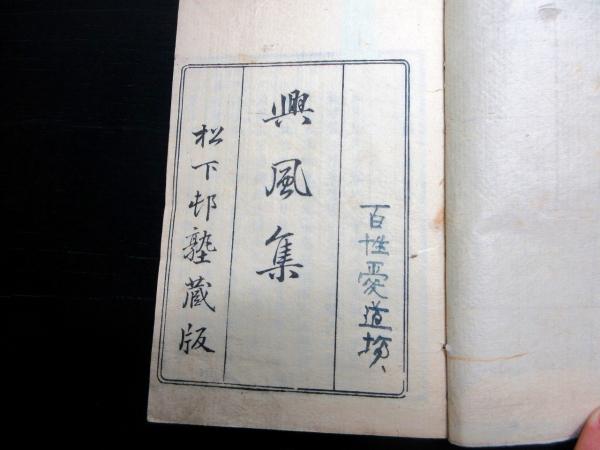 百性愛道楼
興風集
松下邨塾蔵版